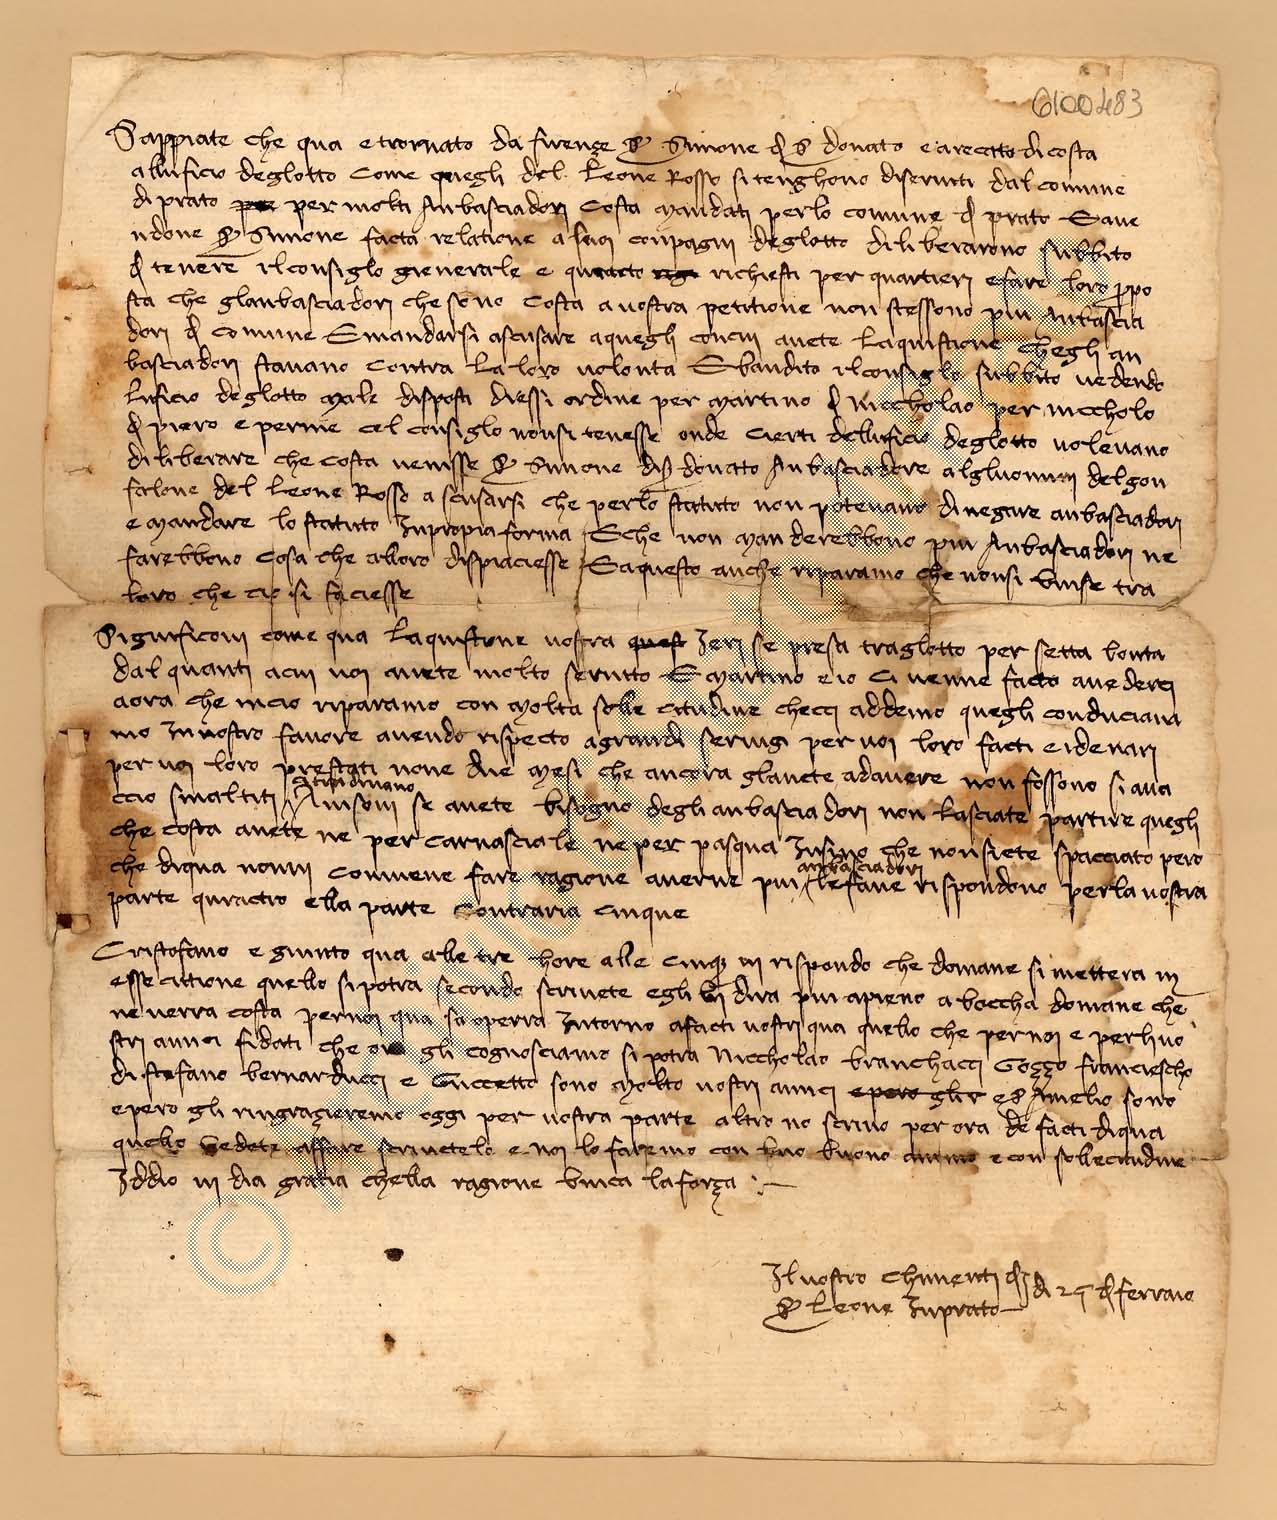 6100483
Sappiate che qua e tornato da firenze S Simone d S donato e a recctto di costa
alluficio deglotto Come quegli del Leone Rosso si tenghono diserviti dal comune
di prato per molti Anbasciadori Costa mandati perlo comune d prato E ave
ndone S Simone facta relatione a suoi conpagni deglotto diliberarono subbito
d tenere ilconsiglo gienerale e richiesti per quartieri e fare loro propo
sta che glanbasciadori che sono Costa a vostra petitione non stessono piu Anbascia
dori d Comune E mandarsi a scusare a quegli concui avete laquistione chegli an
basciadori stavano Contra la loro volonta E bandito ilconsiglo subbito vedendo
luficio deglotto male disposti diessi ordine per martino d Niccholao per niccholo
d piero e perme cel consiglo nonsi tenesse onde Cierti delluficio deglotto volevano
diliberare che Costa venisse S Simone di S donato Anbasciadore algluomini delgon
falone del Leone Rosso a scusarsi che perlo statuto non potevano dinegare anbasciadori
e mandare lo statuto Inpropia forma E che non manderebbono piu Anbasciadori ne
farebbono Cosa che alloro dispiaciesse E a questo anche riparamo che nonsi vinse tra
loro che cio si faciesse
Significovi come qua laquistione vostra Ieri se presa traglotto per setta lonta
dal quanti acui voi avete molto servito E martino e io Ci venne facto avederci
aora che incio riparamo con molta sollecitudine checci addemo quegli conduciava
mo Invostro favore avendo rispecto agrandi servigi per voi loro facti e idenari
per voi loro prestati none due mesi che ancora glavete adavere non fossono si ava
ccio smaltiti Avisovi se avete bisogno degli anbasciadori non lasciate partire quegli
che costa avete ne per Carnasciale ne per pasqua Insino che nonsiete spacciato pero
che diqua nonvi Conviene fare ragione averne piu anbasciadori le fave rispondono perla vostra
parte quractro ella parte Contraria Cinque
Cristofano e giunto qua alle tre hore alle Cinque vi rispondo che domane si mettera in
essecuttione quello si potra secondo scrivete egli vi dira piu apieno a boccha domane che
ne verra costa pernoi qua saoperra Intorno afacti vostri qua quello che pernoi e perlivo
stri amici fidati che ora gli cognosciamo si potra Niccholao branchacci Gozzo franciescho
di stefano bernarducci e Guccetto sono molto vostri amici e pero gli e S Amelio sono
e pero gli ringrazieremo oggi per vostra parte altro no scrivo per ora de facti diqua
quello vedete affare scrivetelo e noi lo faremo con buono animo e con sollecitudine
Iddio vi dia gratia chella ragione vinca laforza
Ilvostro Chimenti d di 25 d ferraio
S Leone Inprato